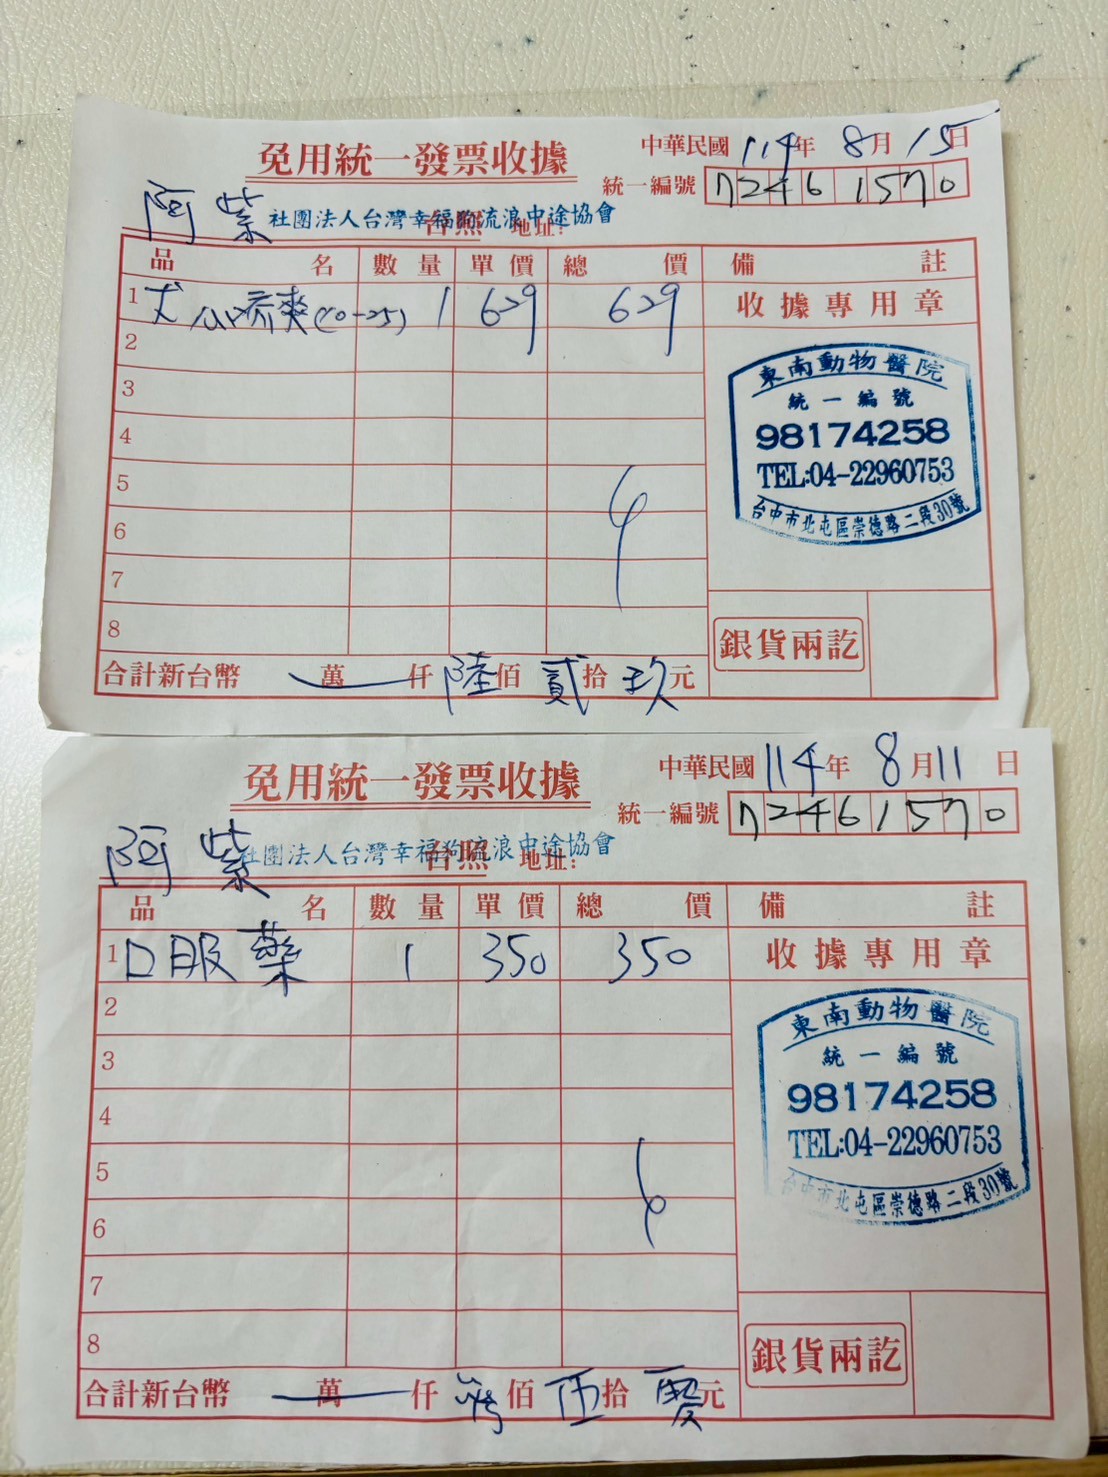 免用統一發票收據
中華民國114年8月15日
統一編號 72461570
阿紫 社團法人台灣幸福狗流浪中途協會
台照 地址:
品名 數量 單價 總價 備註
1 犬 心疥爽(10-25) 1 629 629 收據專用章
2
3
4
5
6
7
8
東南動物醫院
統一編號
98174258
TEL:04-22960753
台中市北屯區崇德路二段30號
銀貨兩訖
合計新台幣 萬 仟陸佰貳拾玖元
免用統一發票收據
中華民國114年8月11日
統一編號 72461570
阿紫 社團法人台灣幸福狗流浪中途協會
台照 地址:
品名 數量 單價 總價 備註
1 口服藥 1 350 350 收據專用章
2
3
4
5
6
7
8
東南動物醫院
統一編號
98174258
TEL:04-22960753
台中市北屯區崇德路二段30號
銀貨兩訖
合計新台幣 萬 仟 佰伍拾零元